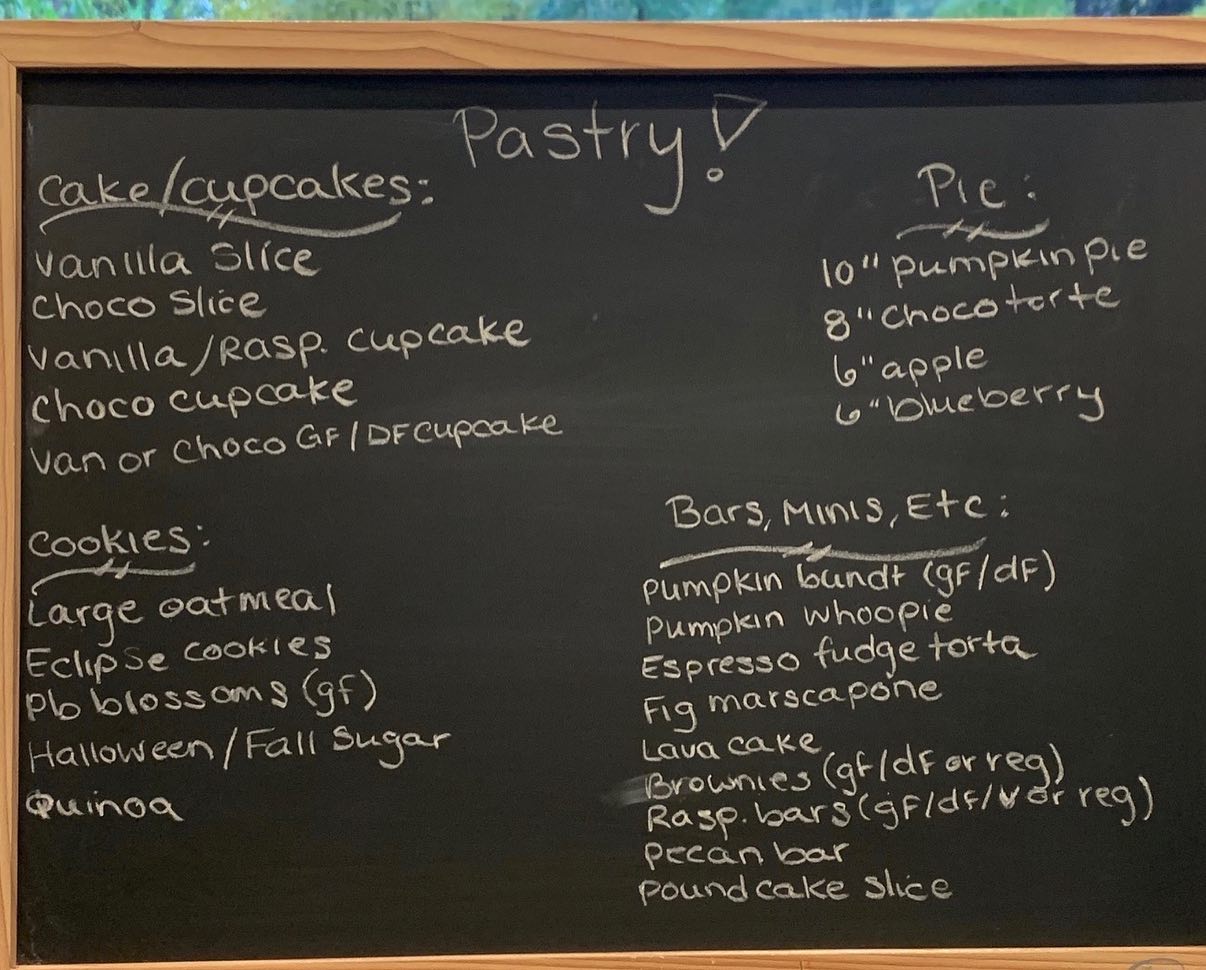 Pastry!
Cake/cupcakes:
Vanilla Slice
Choco Slice
Vanilla/Rasp. cupcake
Choco cupcake
Van or Choco GF/DF Cupcake
Pie:
10" pumpkin pie
8" Choco torte
6" apple
6" blueberry
Cookies:
Large oatmeal
Eclipse cookies
Pb blossoms (gf)
Halloween/Fall Sugar
Quinoa
Bars, Minis, Etc:
Pumpkin bundt (gF/dF)
Pumpkin whoopie
Espresso fudge torta
Fig marscapone
Lava cake
Brownies (gf/dF or reg)
Rasp. bars (gF/dF/V or reg)
Pecan bar
Pound cake slice